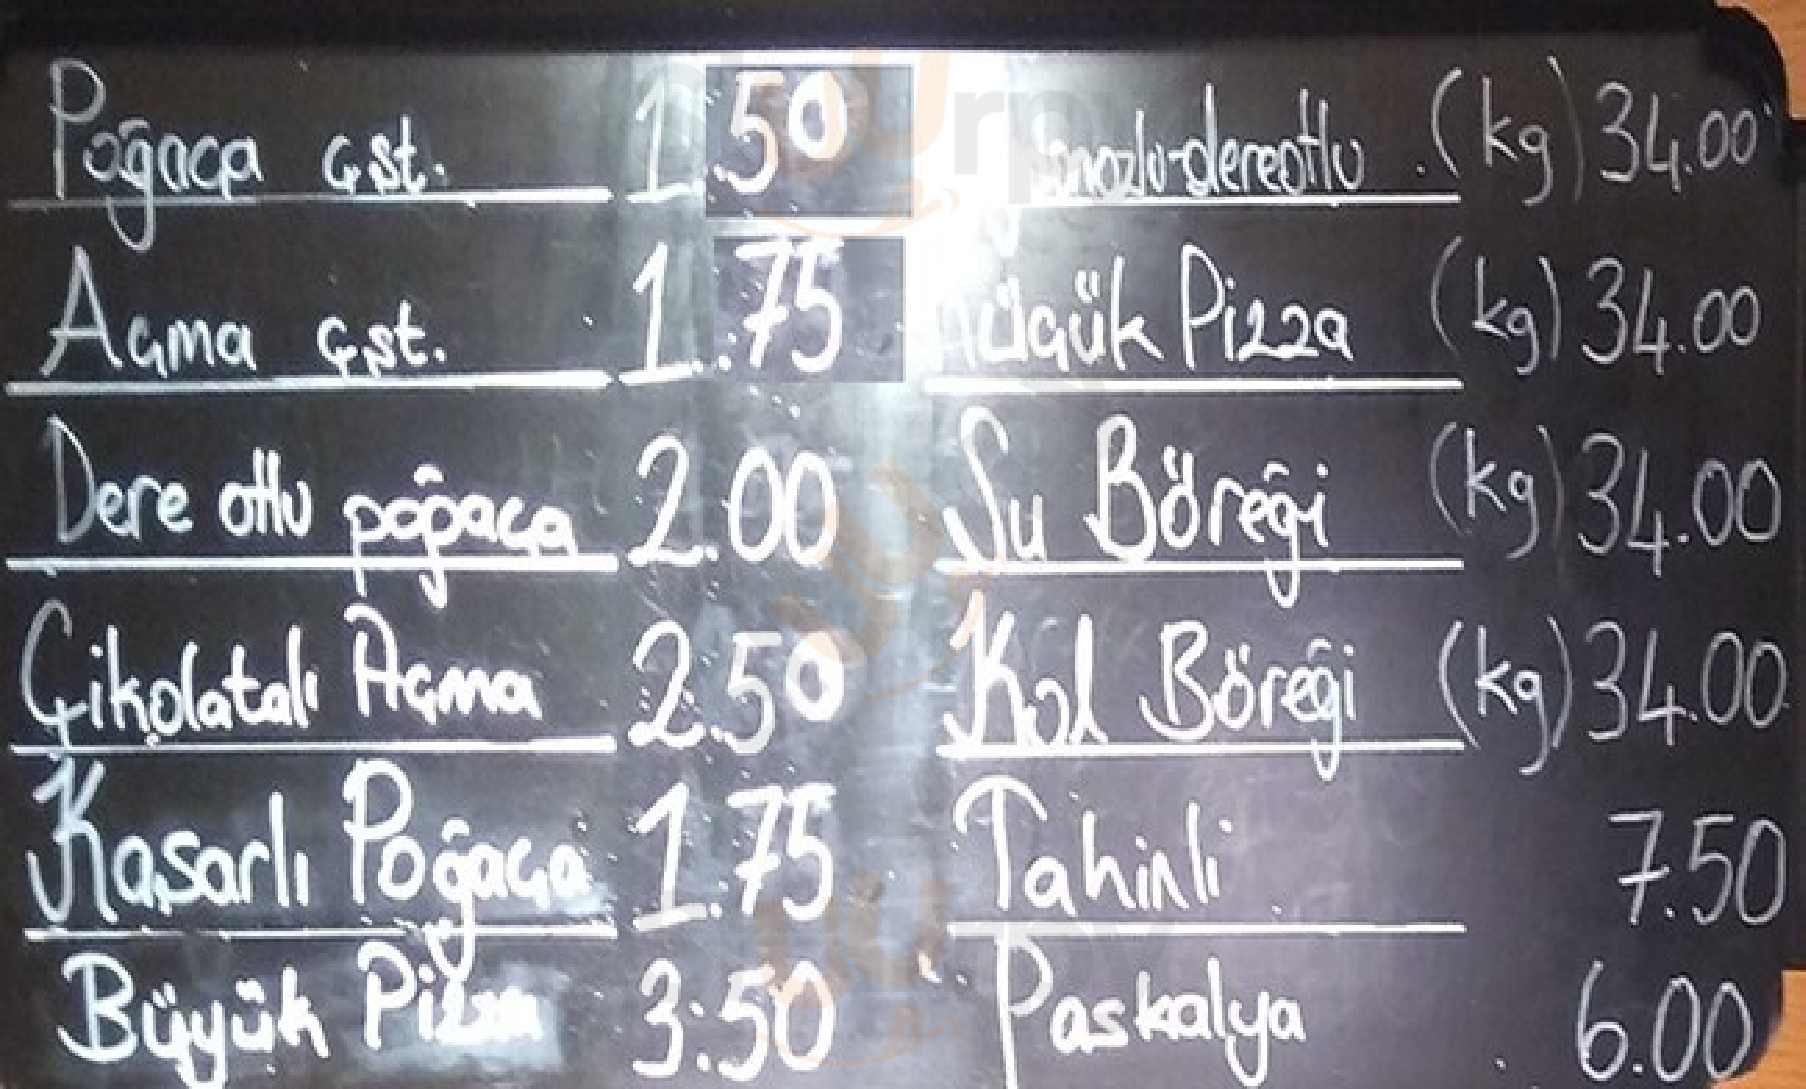 Poğaça çşt. 1.50
Açma çşt. 1.75
Dere otlu poğaça 2.00
Çikolatalı Açma 2.50
Kaşarlı Poğaça 1.75
Büyük Pizza 3.50
dereotlu (kg) 34.00
Küçük Pizza (kg) 34.00
Su Böreği (kg) 34.00
Kol Böreği (kg) 34.00
Tahinli 7.50
Paskalya 6.00